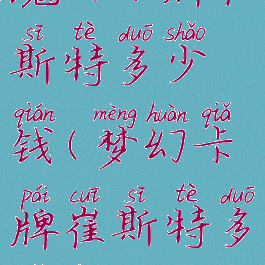 sī tè duō shǎo
斯特多少
qián mèng huàn qiǎ
钱(梦幻卡
pái cuī sī tè duō
牌崔斯特多